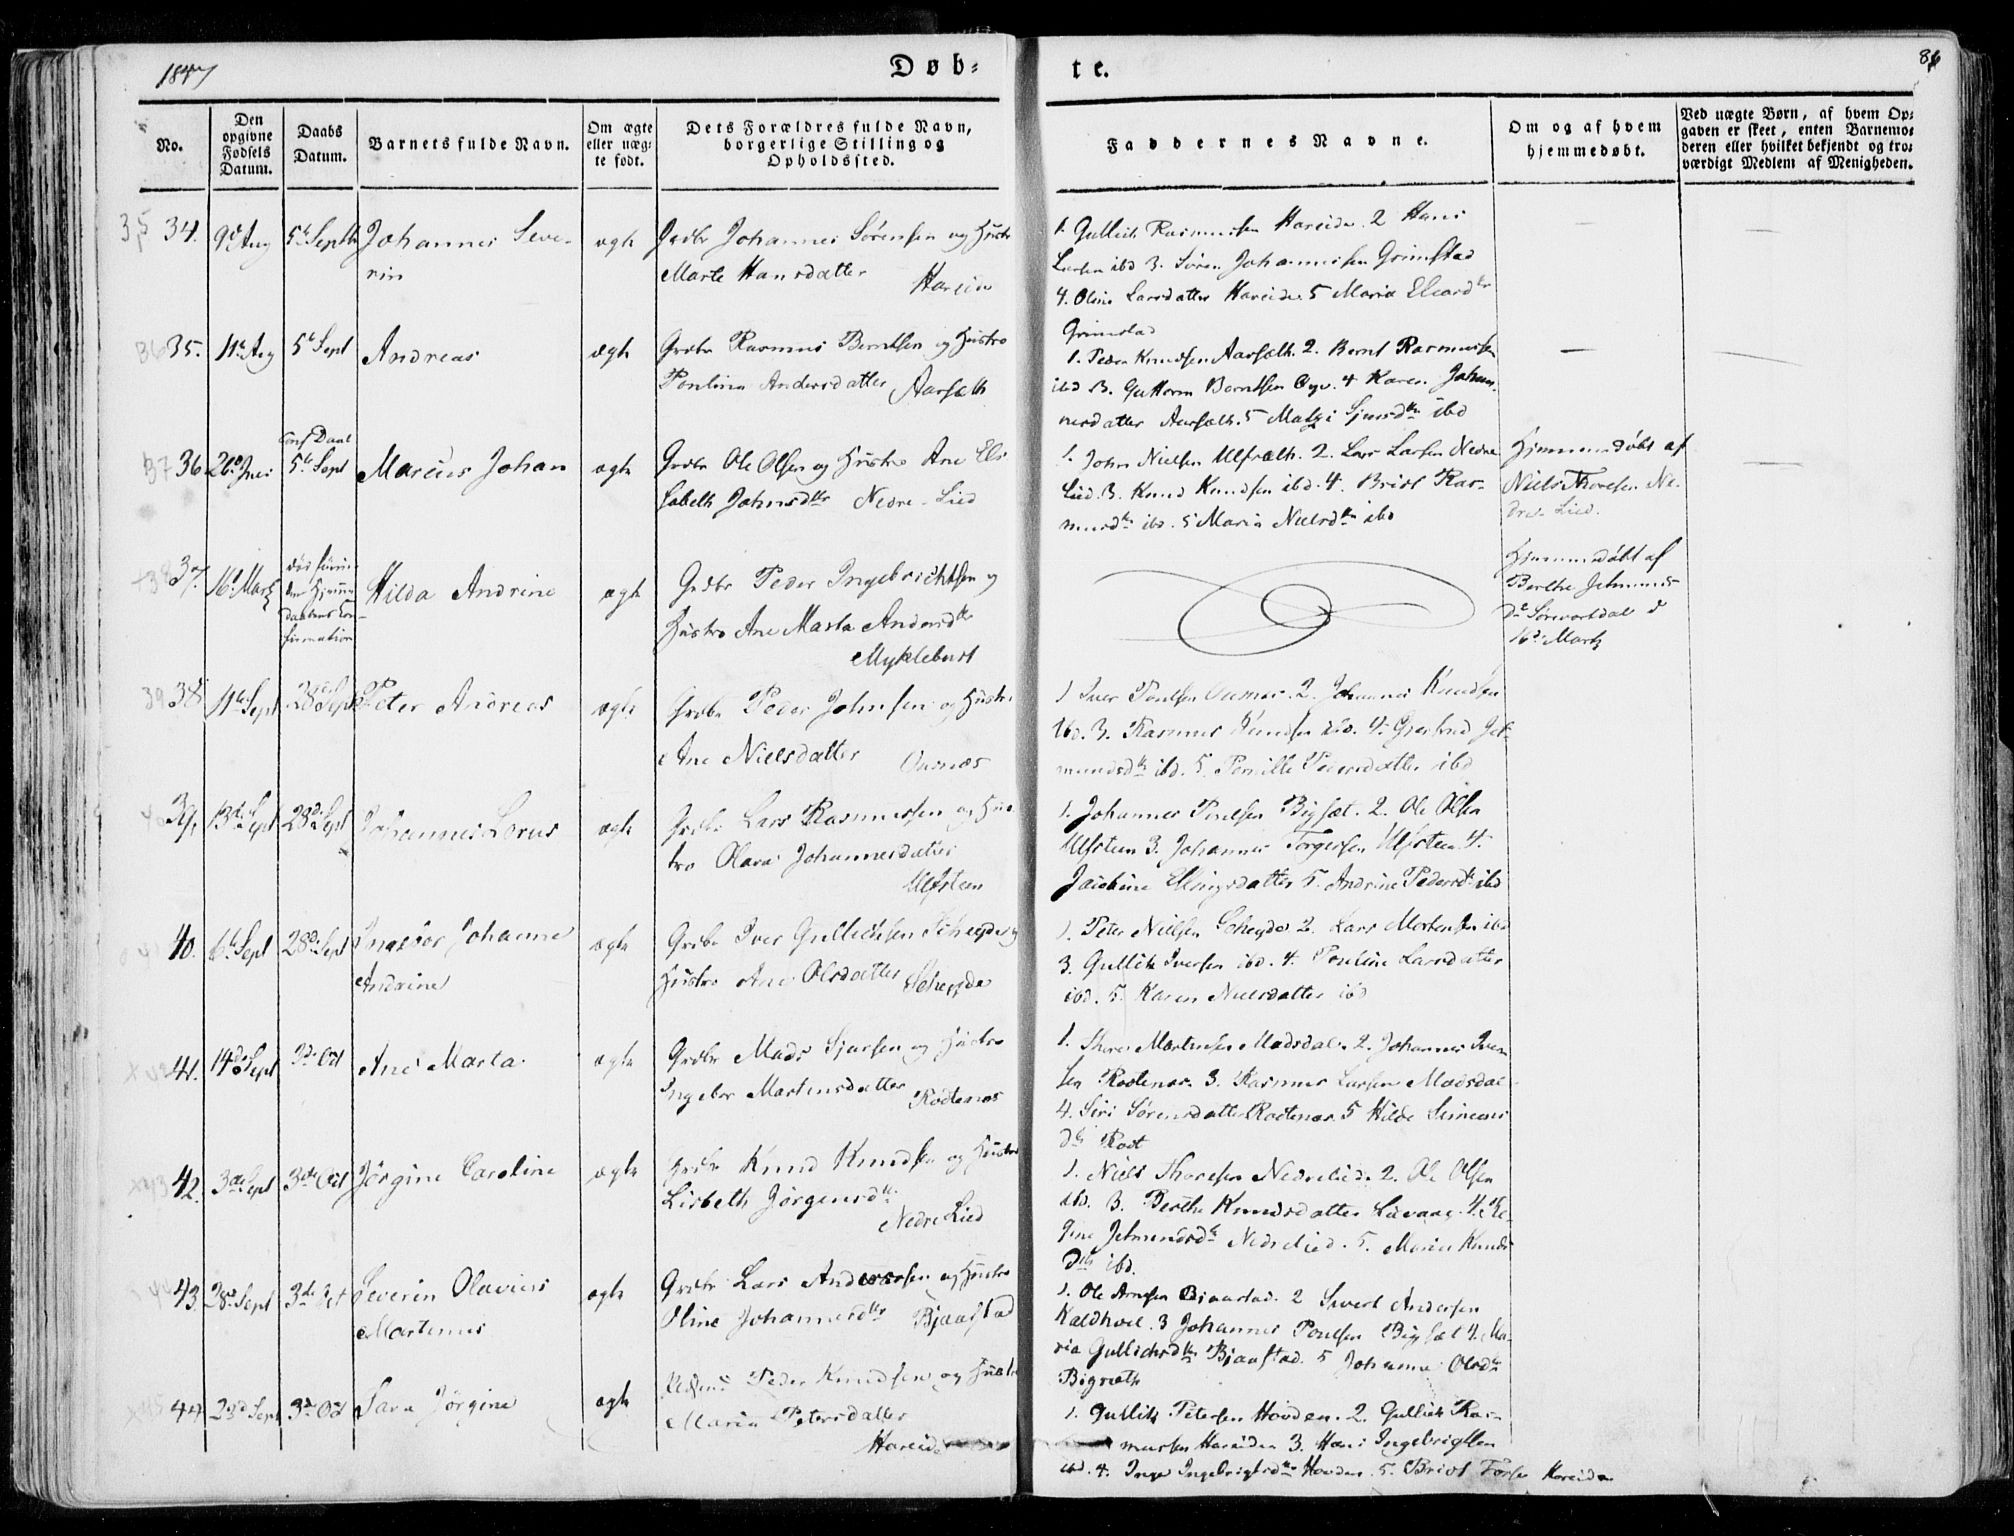 1847
Døb-
te.
86
No.
Den
opgivne
Fødsels
Datum.
Daabs
Datum.
Barnets fulde Navn.
Om ægte
eller uæg-
te født.
Dets Forældres fulde Navn,
borgerlige Stilling og
Opholdssted.
Faddernes Navne.
Om og af hvem
hjemmedøbt.
Ved uægte Børn, af hvem Op-
gaven er skeet, enten Barnemo-
deren eller hvilket bekjendt og tro-
værdigt Medlem af Menigheden.
35 34. 9d Aug 5t Septb Johannes Seve-
rin
ægte
Grdbr Johannes Sørensen og Hustr
Marte Hansdatter
Hareide
1. Gullick Rasmussen Hareide. 2 Hans
Larsen ibd 3. Søren Johannessen Grimstad
4. Oline Larsdatter Hareide. 5 Maria Elcardtr
Grimstad
36 35. 11te Aug 5t Sept Andreas
ægte
Grdbr Rasmus Berntsen og Hustro
Pouline Andersdatter Aarsæth
1. Peder Knudsen Aarsæth. 2. Bernt Rasmussen
ibd 3. Guttorm Berntsen 4 Karen Johan-
nesdatter Aarsæth. 5 Sjursdtr ibd
37 36 26 Juni
conf Daab
5t Sept
Marcus Johan
ægte
Grdbr Ole Olsen og Hustro Ane Eli-
sabeth Johnsdtr Nedre-Lied
1. John Nielsen Ulfsæth. 2. Lars Larsen Nedre
Lied. 3. Knud Knudsen ibd. 4. Brit Ras-
musdtr ibd. 5 Maria Nielsdtr ibd
Hjemmedøbt af
Niels Thoresen Ne-
dre-Lied.
38 37. 16d Marts
død førin-
den Hjemme-
daabens Con-
firmation
Hilda Andrine
ægte
Grdbr Peder Ingebrichtsen og
Hustro Ane Marta Andersdtr
Myklebust
Hjemmedøbt af
Berthe Jetmunds-
dtr Sørevartdal d
16d Marts
39 38 11te Sept 28d Sept Peter Andreas
ægte
Grdbr Peder Johnsen og Hustro
Ane Nielsdatter
1 Iver Poulsen 2. Johannes Knudsen
ibd. 3. Rasmus Knudsen ibd. 4. Gjertrud Jet-
mundsdtr ibd. 5. Pernille Pedersdatter ibd
40 39. 13de Sept 28d Sept Johannes Lorus
ægte
Grdbr Lars Rasmussen og Hus-
tro Olava Johannesdatter
Ulfsteen
1. Johannes Poulsen Bigsæt. 2. Ole Olsen
Ulfsteen 3. Johannes Torgersen Ulfsteen 4.
Jacobine Ellingsdatter 5. Andrine Pedersdtr ibd
41 40. 6te Sept 28d Sept Ingebor Johanne
Andrine
ægte
Grdbr Iver Gullichsen Scheyde og
Hustro Ane Olsdatter Scheyde
1. Peter Nielsen Scheyde 2. Lars Mortensen ibd
3. Gullik Iversen ibd. 4. Pouline Larsdatter
ibd. 5. Karen Nielsdatter ibd
42 41. 14de Sept 3d Oct Ane Marta
ægte
Grdbr Mads Sjursen og Hustro
Ingebor Martensdatter
Rodtenes
1. Thore Martensen Madsdal. 2. Johannes Iver-
sen Rodtenes. 3. Rasmus Larsen Madsdal
4. Siri Sørensdatter Rodtenes 5 Hilde Simeons
dtr
43 42. 3de Sept 3de Oct Jørgine Caroline
ægte
Grdbr Knud Knudsen og Hustro
Lisbeth Jørgensdtr
Nedre Lied
1. Niels Thoresen Nedrelied. 2. Ole Olsen
ibd. 3. Berthe Knudsdatter 4. Re-
gine Jetmundsdtr Nedrelied. 5. Maria Knuds
dtr ibd.
44 43 28d Sept 3de Oct Severin Olavius
Martinus
ægte
Grdbr Lars Andersen og Hustro
Oline Johannesdtr Bjaastad
1. Ole Arnesen Bjaastad. 2 Sivert Andersen
Kaldhoel. 3 Johannes Poulsen Bigsæt 4. Ma-
ria Gullichsdtr Bjaastad. 5 Johanna Olsdtr
Bigsæth
45 44 23d Sept 3d Oct Sara Jørgine
ægte
Peder Knudsen og Hustr
Maria Petersdatter
Hareide
1. Gullik Petersen Hovden. 2. Gullick Ras-
mussen Hareide 3. Hans Ingebrigtsen
ibd. 4. Inge Ingebrigtsdtr Hovden. 5. Brit Hareide